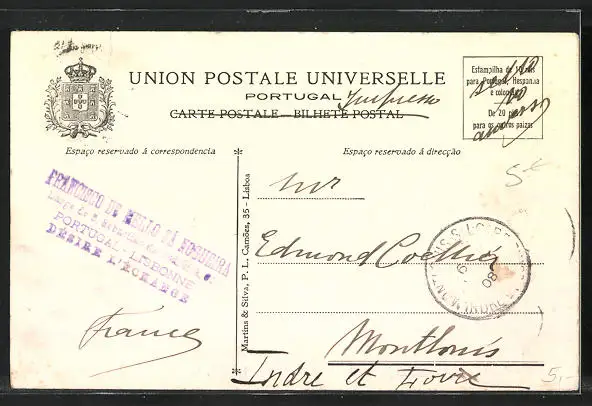 UNION POSTALE UNIVERSELLE
PORTUGAL Impresso
CARTE POSTALE - BILHETE POSTAL
Estampilha de 10 réis
para Portugal, Hespanha
e colonias
De 20 réis
para os outros paizes
Espaço reservado á correspondencia
Espaço reservado á direcção
5
FRANCISCO DE MELLO SÁ NOGUEIRA
PORTUGAL-LISBONNE
DÉSIRE L'ÉCHANGE
France
Martins & Silva, P. L. Camões, 35 - Lisboa
Mr
Edmond
Montlouis
Indre et Loire
5,-